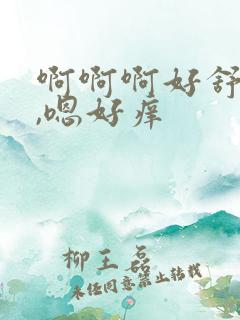 啊啊啊好舒
,嗯好痒
柳王磊
未经同意禁止转载